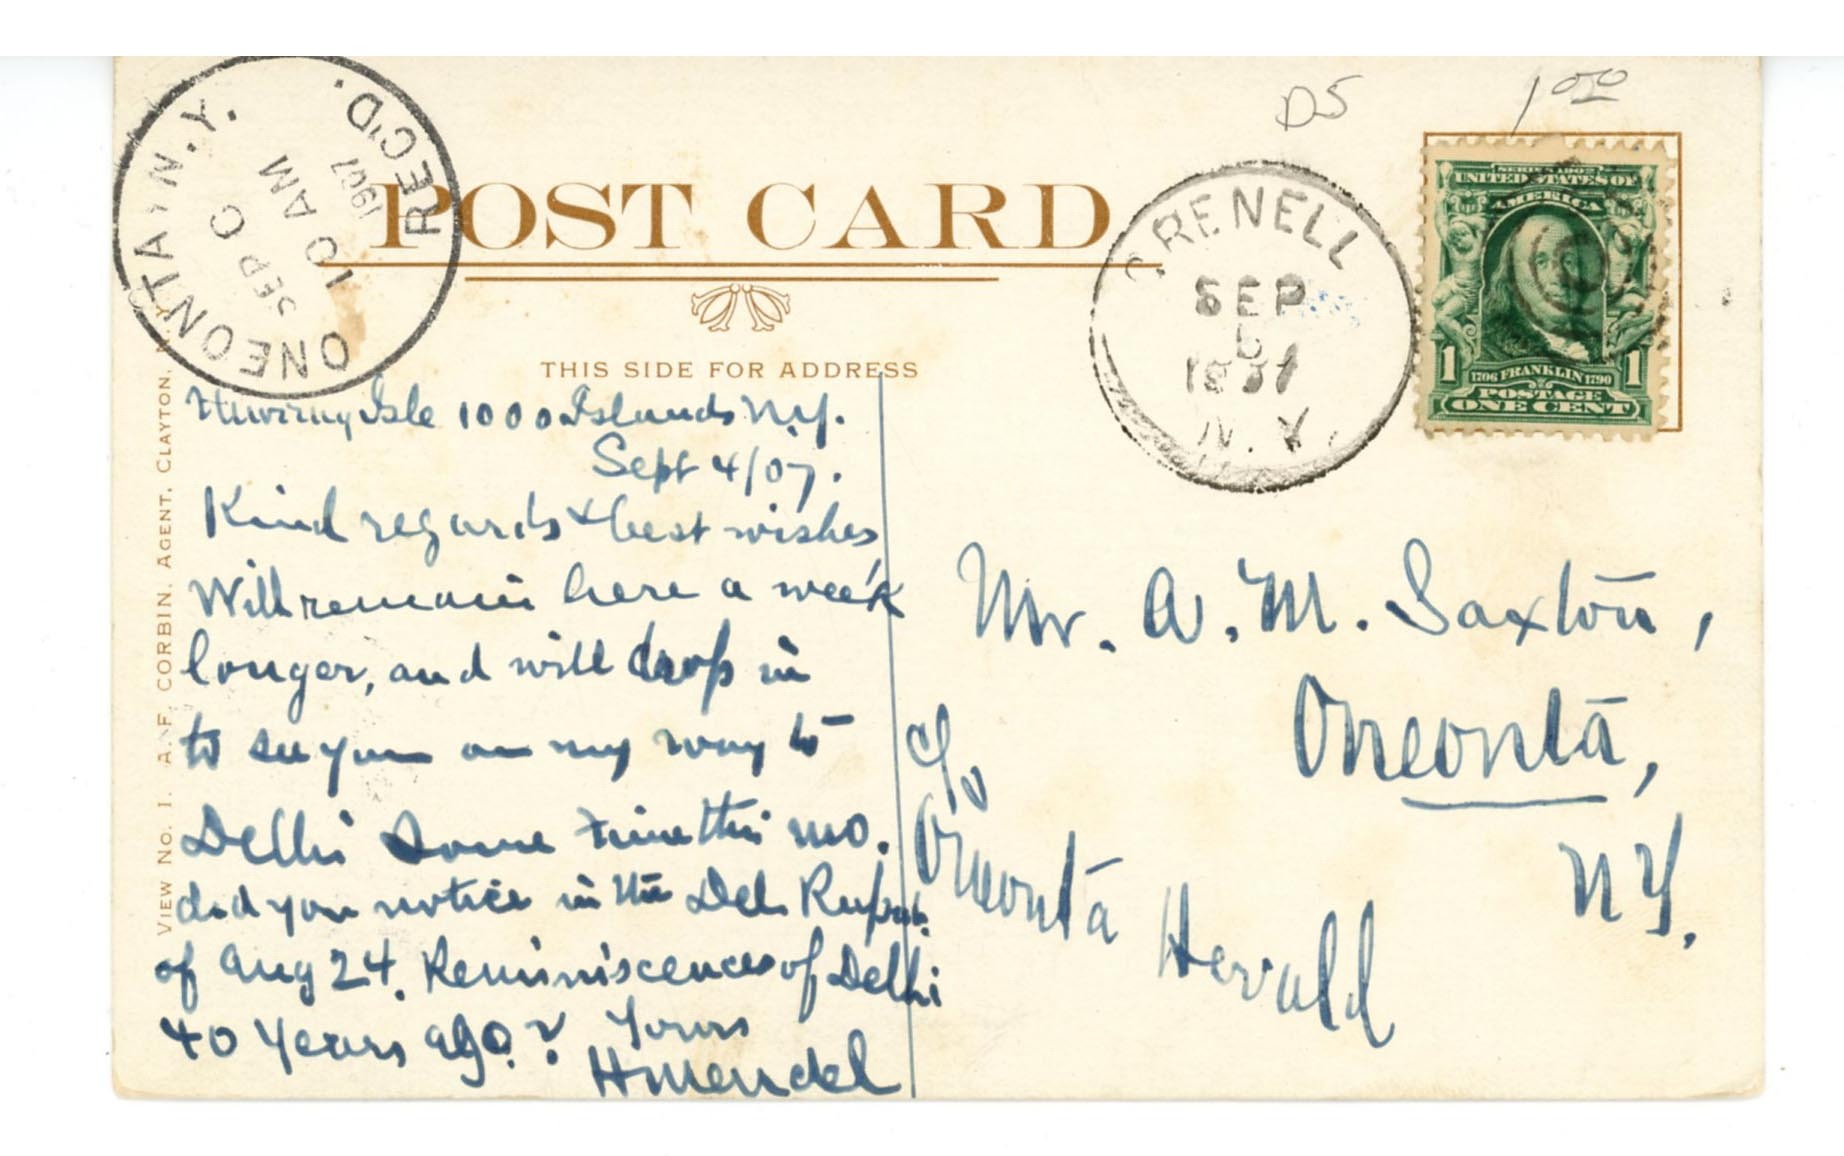 D5 1 00
ONEONTA, N.Y. REC'D.
SEP 10 AM 1907
POST CARD
GRENELL
SEP
1907
N.Y.
SERIES 1902
UNITED STATES OF
AMERICA
1 1706 FRANKLIN 1790 1
POSTAGE
ONE CENT
THIS SIDE FOR ADDRESS
VIEW NO. 1. A. F. CORBIN, AGENT, CLAYTON, N.Y.
Isle 1000 Islands N.Y.
Sept 4/07.
Kind regards & best wishes
Will remain here a week
longer, and will drop in
to see you on my way to
Delhi some time this mo.
did you notice in the Del.
of Aug 24. Reminiscences of Delhi
40 Years ago? Yours
HMendel
Mr. A. M. Saxton,
Oneonta,
N.Y.
c/o
Oneonta Herald